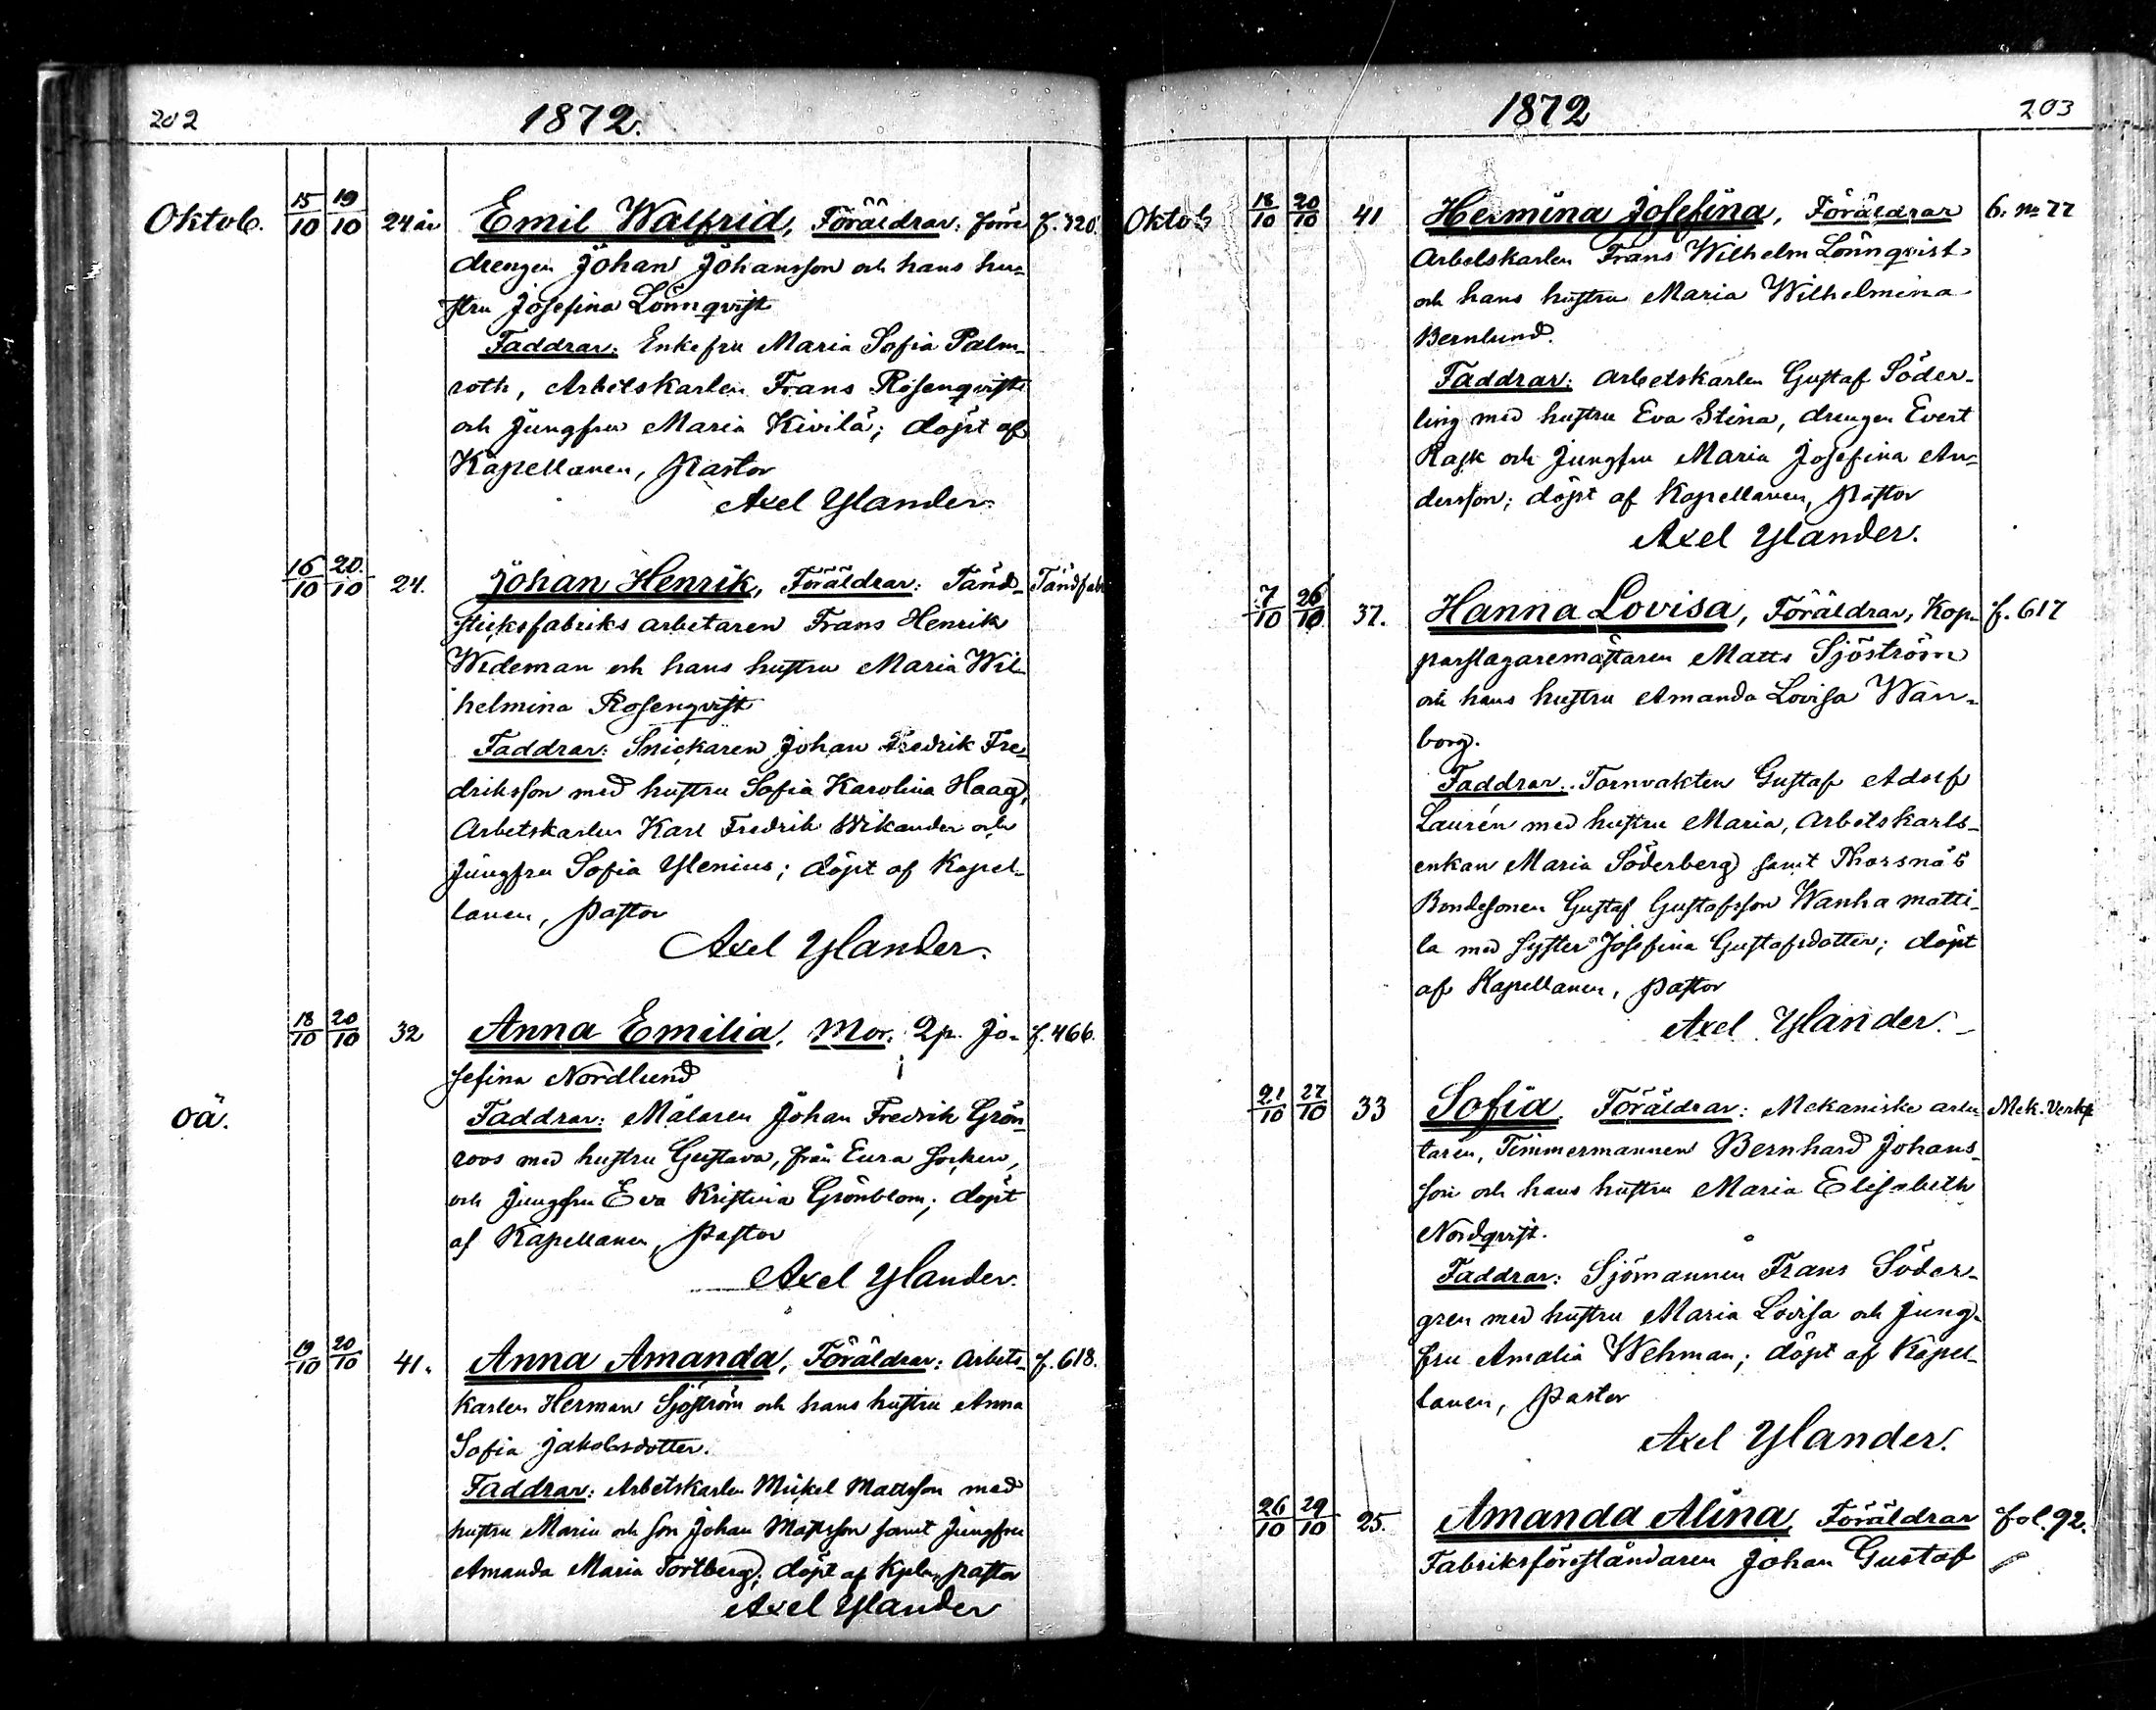 202
1872.
Oktob. 15/10 19/10 24 år Emil Walfrid, Föräldrar: f. 320.
drengen Johan Johansson och hans hu-
stru Josefina Lönnqvist
Faddrar: Enkefru Maria Sofia Palm-
roth, Arbetskarlen Frans Rosenqvist
och Jungfru Maria Kivilä; döpt af
Kapellanen, Pastor
Axel Ylander.
16/10 20/10 24. Johan Henrik, Föräldrar: Tänd- Tändfabr
sticksfabriks arbetaren Frans Henrik
Wideman och hans hustru Maria Wil-
helmina Rosenqvist
Faddrar: Snickaren Johan Fredrik Fre-
driksson med hustru Sofia Karolina Haag,
Arbetskarlen Karl Fredrik Wikander och
Jungfru Sofia Ylenius; döpt af Kapel-
lanen, Pastor
Axel Ylander.
18/10 20/10 32 Anna Emilia, Mor: Qp. Jo- f. 466.
sefina Nordlund
oä. Faddrar: Målaren Johan Fredrik Grön-
roos med hustru Gustava, från Eura socken,
och Jungfru Eva Kristina Grönblom; döpt
af Kapellanen, Pastor
Axel Ylander.
19/10 20/10 41. Anna Amanda, Föräldrar: Arbets- f. 618.
karlen Herman Sjöström och hans hustru Anna
Sofia Jakobsdotter.
Faddrar: Arbetskarlen Mickel Mattsson med
hustru Maria och son Johan Mattsson samt Jungfru
Amanda Maria Fortberg; döpt af Kpln, pastor
Axel Ylander
1872
203
Oktob 18/10 20/10 41 Hermina Josefina, Föräldrar 6. no 77
Arbetskarlen Frans Wilhelm Lönnqvist
och hans hustru Maria Wilhelmina
Bernlund.
Faddrar: Arbetskarlen Gustaf Söder-
ling med hustru Eva Stina, drengen Evert
Rask och Jungfru Maria Josefina An-
dersson; döpt af Kapellanen, Pastor
Axel Ylander.
7/10 26/10 37. Hanna Lovisa, Föräldrar, Kop- f. 617
parslagaremästaren Matts Sjöström
och hans hustru Amanda Lovisa Wän-
borg.
Faddrar: Tornvakten Gustaf Adolf
Laurén med hustru Maria, Arbetskarls-
enkan Maria Söderberg samt Thorsnäs
Bondesonen Gustaf Gustafsson Wanhamatti-
la med syster Josefina Gustafsdotter; döpt
af Kapellanen, Pastor
Axel Ylander.
21/10 27/10 33 Sofia Föräldrar: Mekaniske arbe- Mek. Verkst
taren, Timmermannen Bernhard Johans-
son och hans hustru Maria Elisabeth
Nordqvist.
Faddrar: Sjömannen Frans Söder-
gren med hustru Maria Lovisa och Jung-
fru Amalia Wehman; döpt af Kapel-
lanen, Pastor
Axel Ylander.
26/10 29/10 25. Amanda Alina, Föräldrar fol. 92.
Fabriksföreståndaren Johan Gustaf